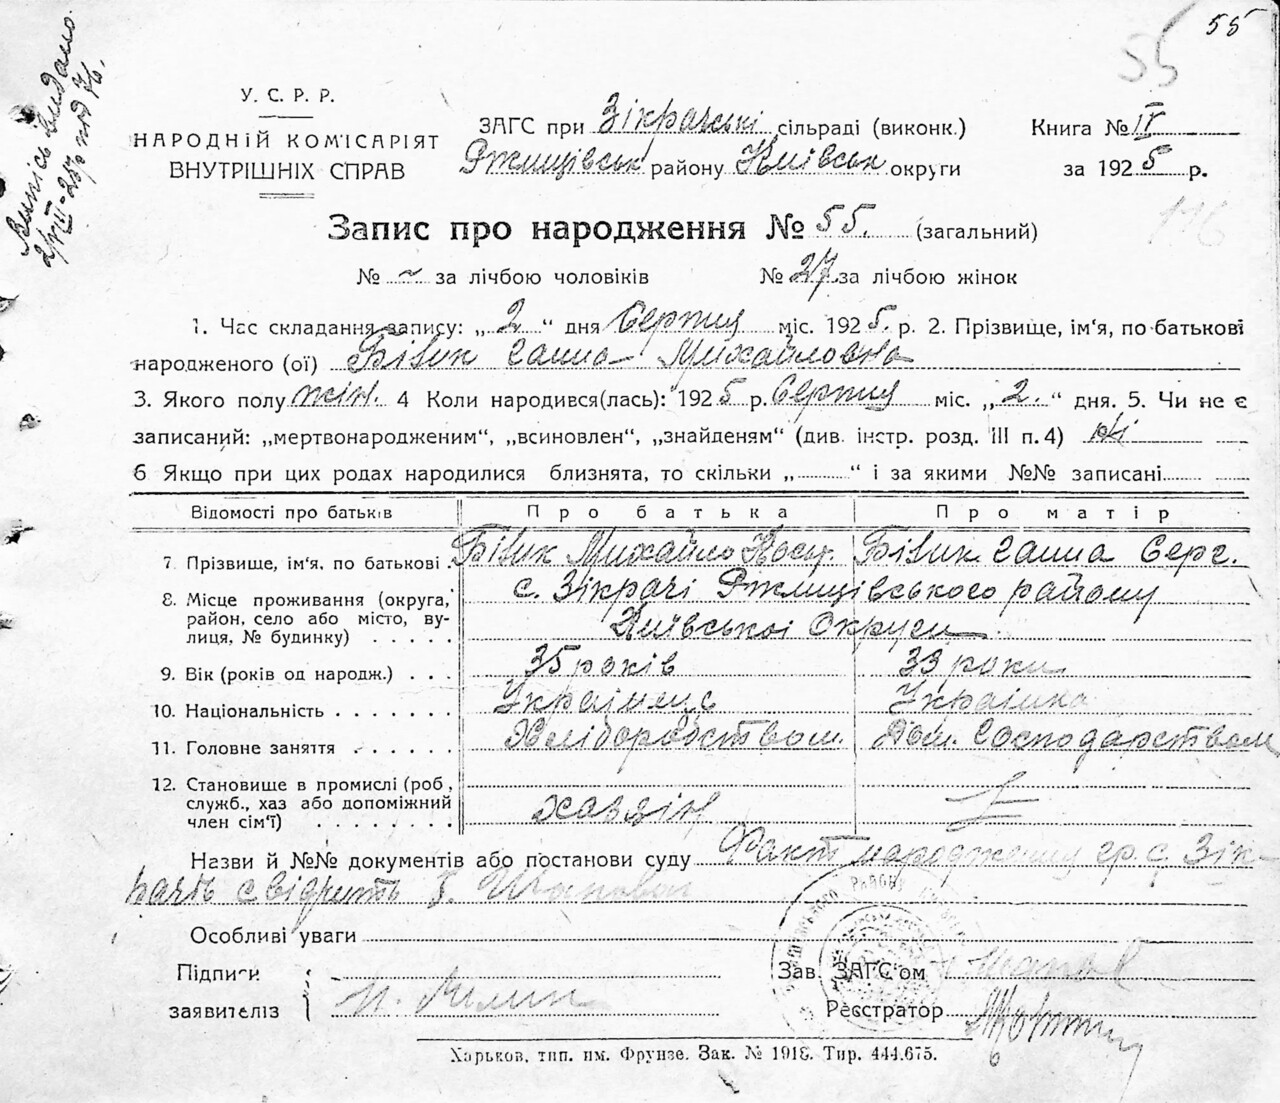 55
55
Випись видано
2/VIII-25р под 76.
У. С. Р. Р.
НАРОДНІЙ КОМІСАРІЯТ
ВНУТРІШНІХ СПРАВ
ЗАГС при Зікрачські сільраді (виконк.)
Ржищівськ району Київськ округи
Книга № IV
за 1925 р.
116
Запис про народження № 55. (загальний)
№ ~ за лічбою чоловіків № 27 за лічбою жінок
1. Час складання запису: „ 2 “ дня Серпня міс. 1925. р. 2. Прізвище, ім'я, по батькові
народженого (ої) Бівик Ганна Михайловна
3. Якого полу жін. 4 Коли народився(лась): 1925 р. Серпня міс. „ 2. “ дня. 5. Чи не є
записаний: „мертвонародженим“, „всиновлен“, „знайденям“ (див. інстр. розд. III п. 4) ні
6 Якщо при цих родах народилися близнята, то скільки „ “ і за якими №№ записані
Відомості про батьків Про батька Про матір
7. Прізвище, ім'я, по батькові . Бівик Михайло Бівик Ганна Серг.
8. Місце проживання (округа, с. Зікрачі Ржищівського району
район, село або місто, ву- Київської Округи
лиця, № будинку) . . . . .
9. Вік (років од народж.) . . . 35 років 33 роки
10. Національність . . . . . . . Українець Українка
11. Головне заняття . . . . . . Хліборобством. Дом. Господарством
12. Становище в промислі (роб.,
служб., хаз або допоміжний хазяін
член сім'ї) . . . . . . . .
Назви й №№ документів або постанови суду Факт народження гр. с. Зік-
рачь свідчить
Особливі уваги
Підписи
заявителіз
Зав. ЗАГС'ом
Реєстратор
Харьков, тип. им. Фрунзе. Зак. № 1918. Тир. 444.675.